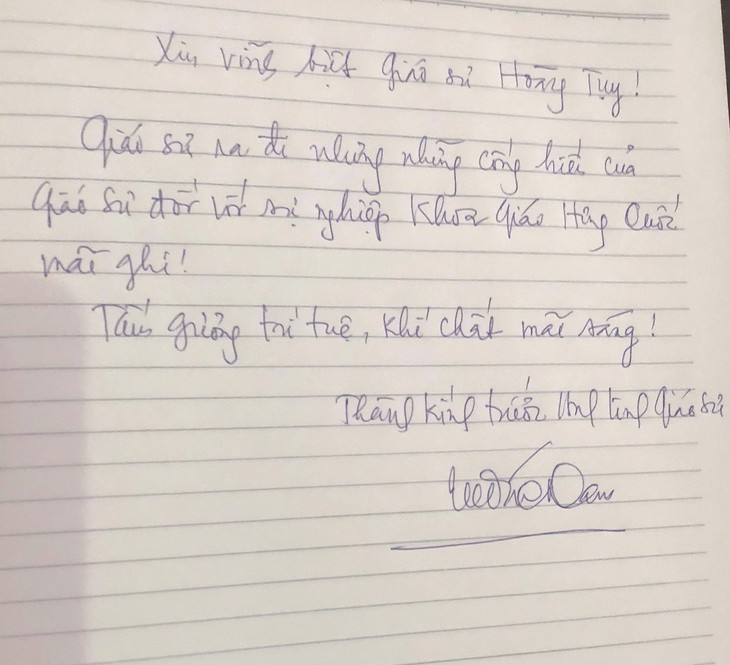 Xin vĩnh biệt Giáo sư Hoàng Tụy!
Giáo sư ra đi nhưng những cống hiến của
Giáo sư đối với sự nghiệp Khoa Giáo Hùng Cuốc
mãi ghi!
Tấm gương trí tuệ, khí chất mãi sáng!
Thành kính trước Anh linh Giáo sư